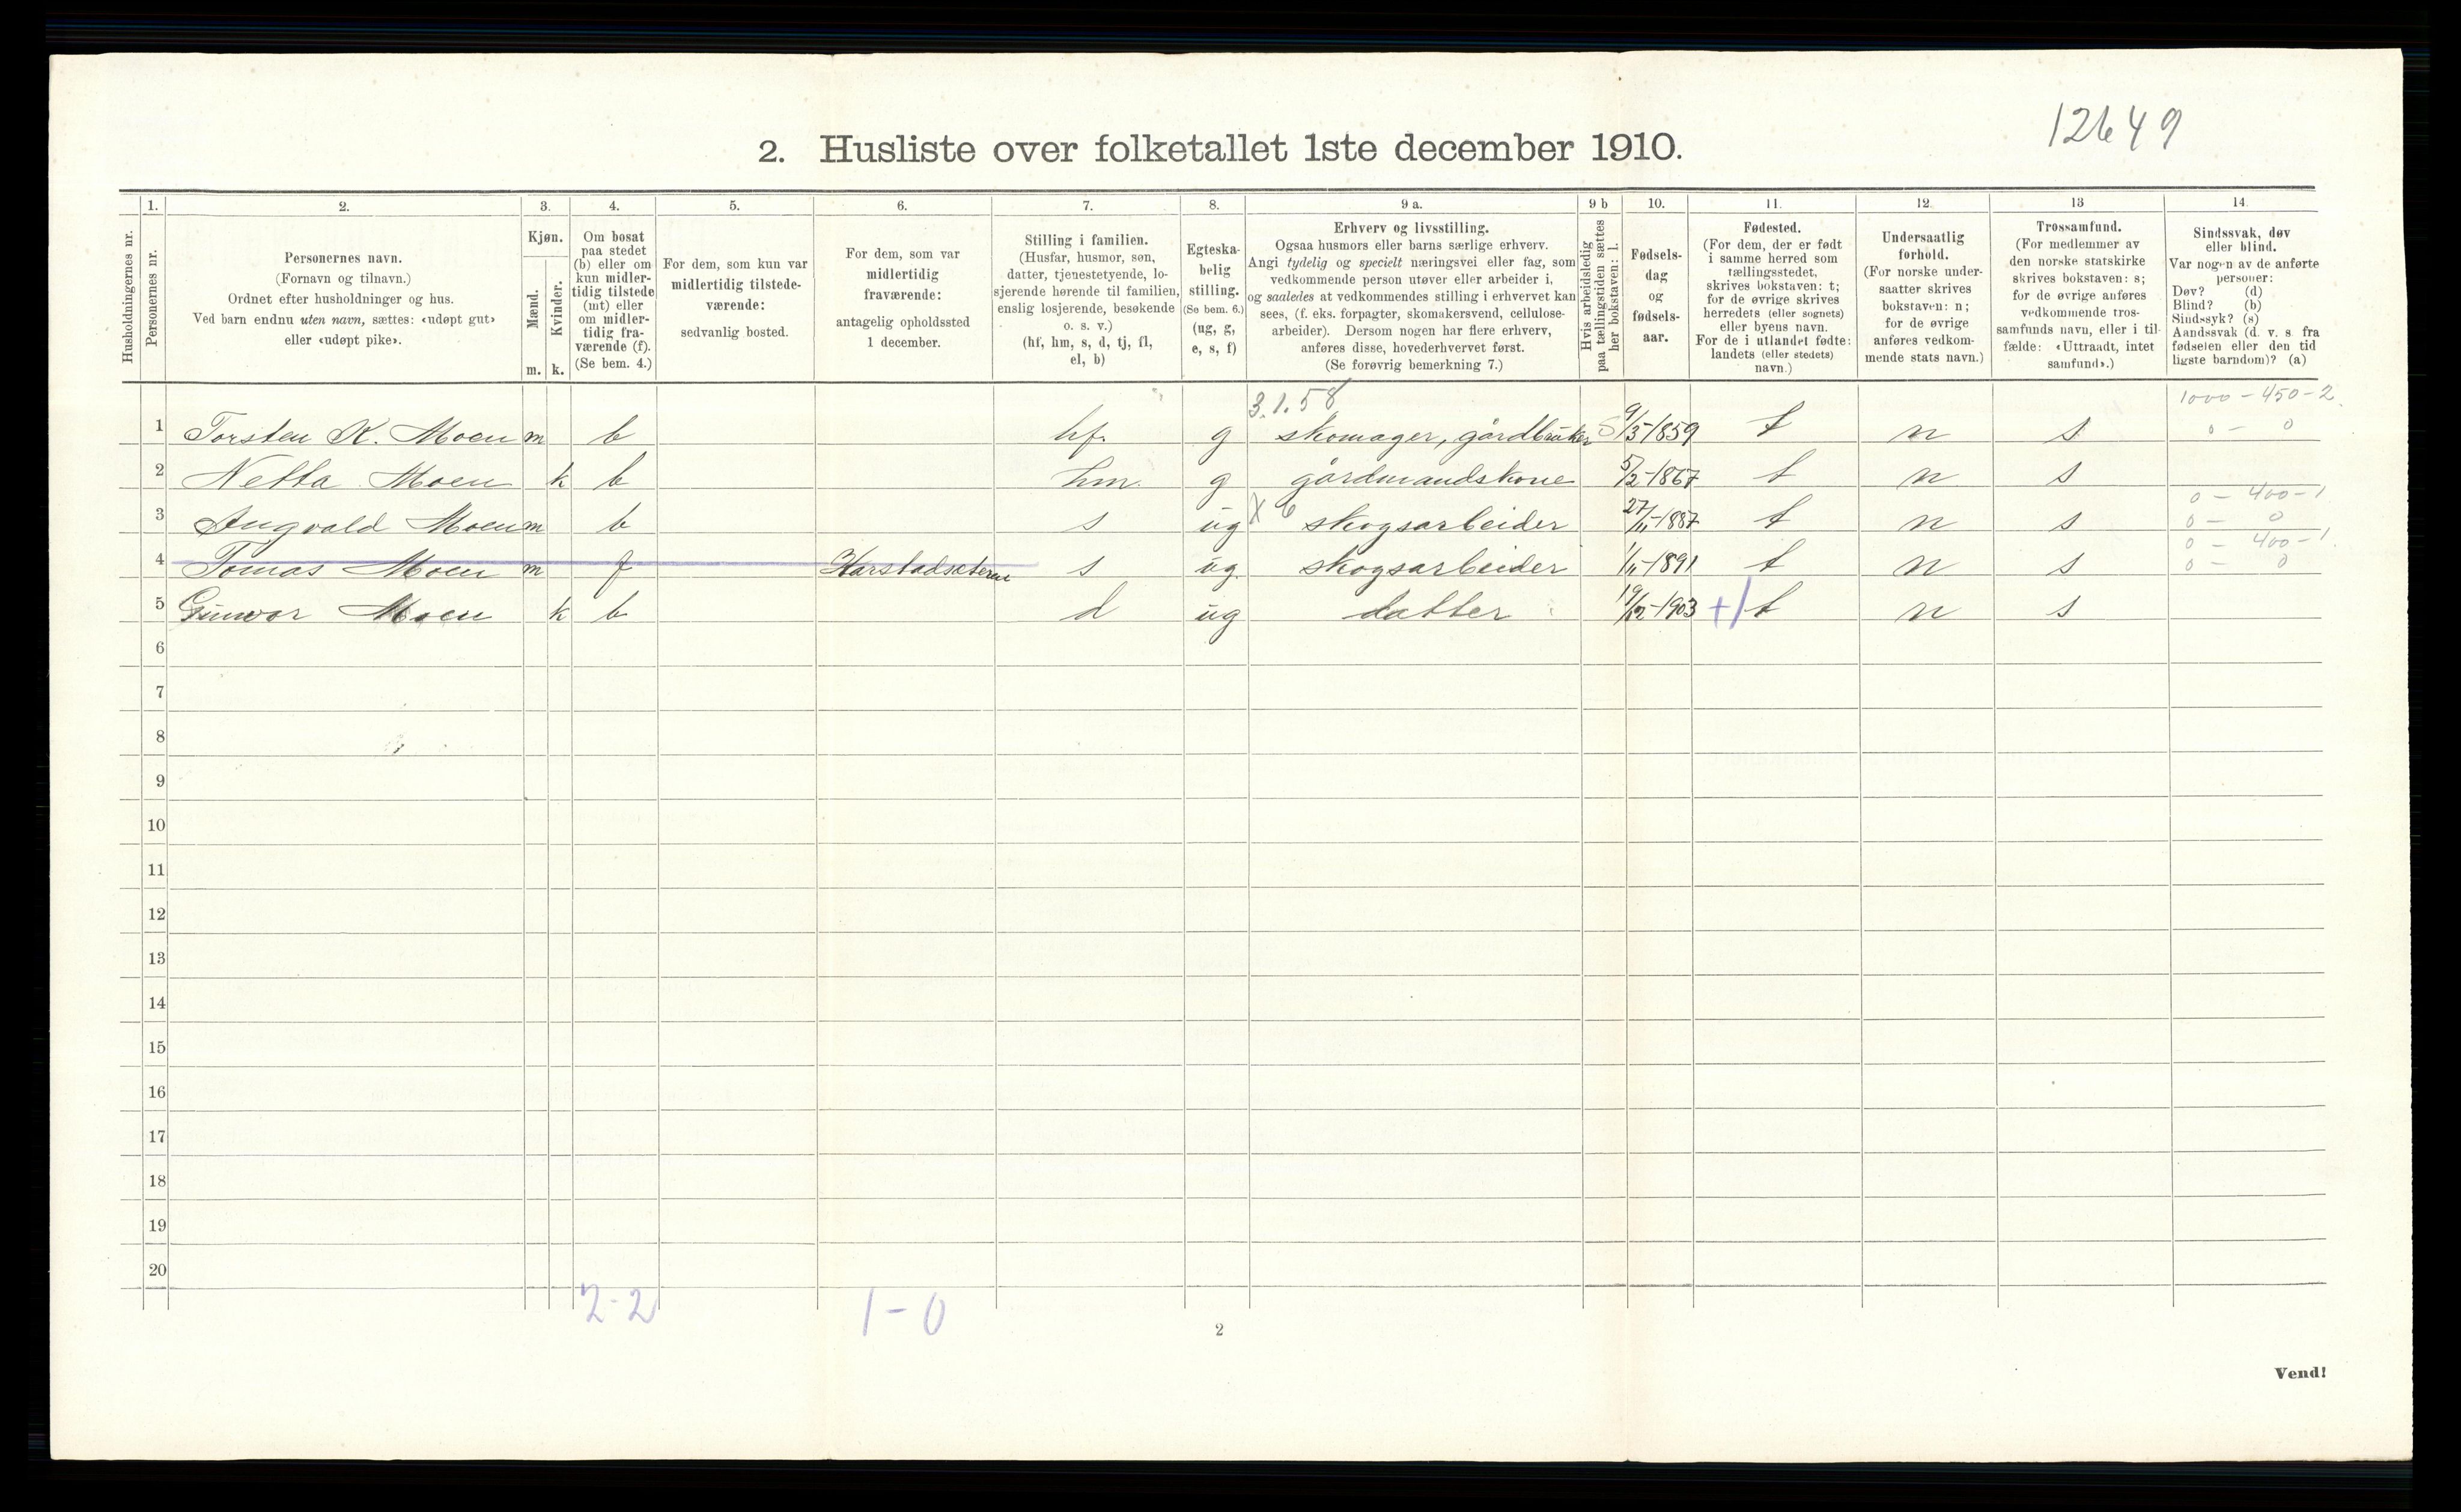 12649
2. Husliste over folketallet 1ste december 1910.
1. 2. 3. 4. 5. 6. 7. 8. 9 a. 9 b 10. 11. 12. 13 14.
Husholdningernes nr.
Personernes nr.
Personernes navn.
(Fornavn og tilnavn.)
Ordnet efter husholdninger og hus.
Ved barn endnu uten navn, sættes: «udøpt gut»
eller «udøpt pike».
Kjøn.
Mænd.
Kvinder.
m. k.
Om bosat
paa stedet
(b) eller om
kun midler-
tidig tilstede
(mt) eller
om midler-
tidig fra-
værende (f).
(Se bem. 4.)
For dem, som kun var
midlertidig tilstede-
værende:
sedvanlig bosted.
For dem, som var
midlertidig
fraværende:
antagelig opholdssted
1 december.
Stilling i familien.
(Husfar, husmor, søn,
datter, tjenestetyende, lo-
sjerende hørende til familien,
enslig losjerende, besøkende
o. s. v.)
(hf, hm, s, d, tj, fl,
el, b)
Egteska-
belig
stilling.
(Se bem. 6.)
(ug, g,
e, s, f)
Erhverv og livsstilling.
Ogsaa husmors eller barns særlige erhverv.
Angi tydelig og specielt næringsvei eller fag, som
vedkommende person utøver eller arbeider i,
og saaledes at vedkommendes stilling i erhvervet kan
sees, (f. eks. forpagter, skomakersvend, cellulose-
arbeider). Dersom nogen har flere erhverv,
anføres disse, hovederhvervet først.
(Se forøvrig bemerkning 7.)
Hvis arbeidsledig
paa tællingstiden sættes
her bokstaven: l.
Fødsels-
dag
og
fødsels-
aar.
Fødested.
(For dem, der er født
i samme herred som
tællingsstedet,
skrives bokstaven: t;
for de øvrige skrives
herredets (eller sognets)
eller byens navn.
For de i utlandet fødte:
landets (eller stedets)
navn.)
Undersaatlig
forhold.
(For norske under-
saatter skrives
bokstaven: n;
for de øvrige
anføres vedkom-
mende stats navn.)
Trossamfund.
(For medlemmer av
den norske statskirke
skrives bokstaven: s;
for de øvrige anføres
vedkommende tros-
samfunds navn, eller i til-
fælde: «Uttraadt, intet
samfund».)
Sindssvak, døv
eller blind.
Var nogen av de anførte
personer:
Døv? (d)
Blind? (b)
Sindssyk? (s)
Aandssvak (d. v. s. fra
fødselen eller den tid
ligste barndom)? (a)
3.1.58 1000 - 450 - 2
1 Torsten K. Moen m b hf. g skomager, gårdbruker 9/5-1859 t n s 0 - 0
2 Netta Moen k b hm. g gårdmandskone 5/2-1867 t n s
0 - 400 - 1
3 Angvald Moen m b s ug X 6 skogsarbeider 27/11-1887 t n s 0 - 0
0 - 400 - 1.
4 Tomas Moen m f Harstadseteren s ug. skogsarbeider 1/11-1891 t n s 0 - 0
5 Gunvor Moen k b d ug datter 19/12-1903 +/ t n s
6
7
8
9
10
11
12
13
14
15
16
17
18
19
20
2-2 1-0
2
Vend!